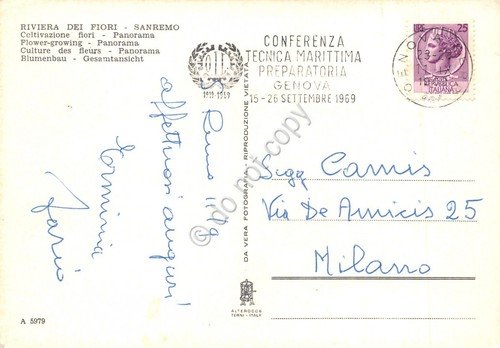 RIVIERA DEI FIORI - SANREMO
Coltivazione fiori - Panorama
Flower-growing - Panorama
Culture des fleurs - Panorama
Blumenbau - Gesamtansicht
OIL
1919-1969
CONFERENZA
TECNICA MARITTIMA
PREPARATORIA
GENOVA
15-26 SETTEMBRE 1969
25
ITALIANA
GENOVA
affettuosi auguri
Erminia
Mario
Sigg Camis
Via De Amicis 25
Milano
DA VERA FOTOGRAFIA - RIPRODUZIONE VIETATA
ALTEROCCA
TERNI - ITALY
A 5979
do not copy